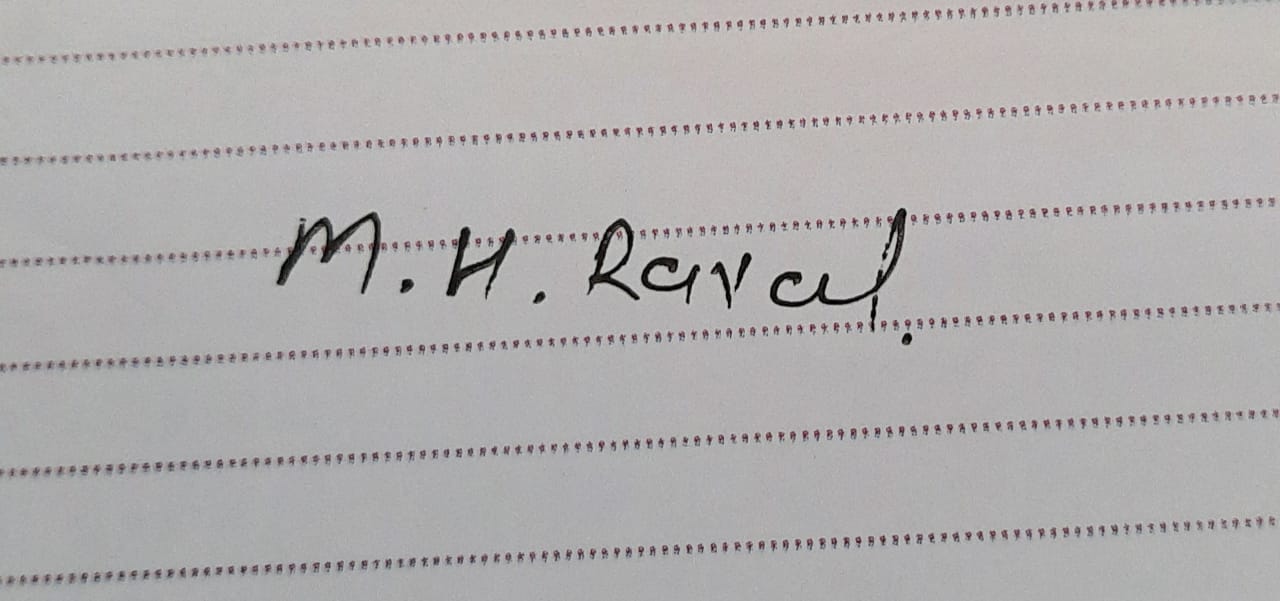 M. H. Raval.